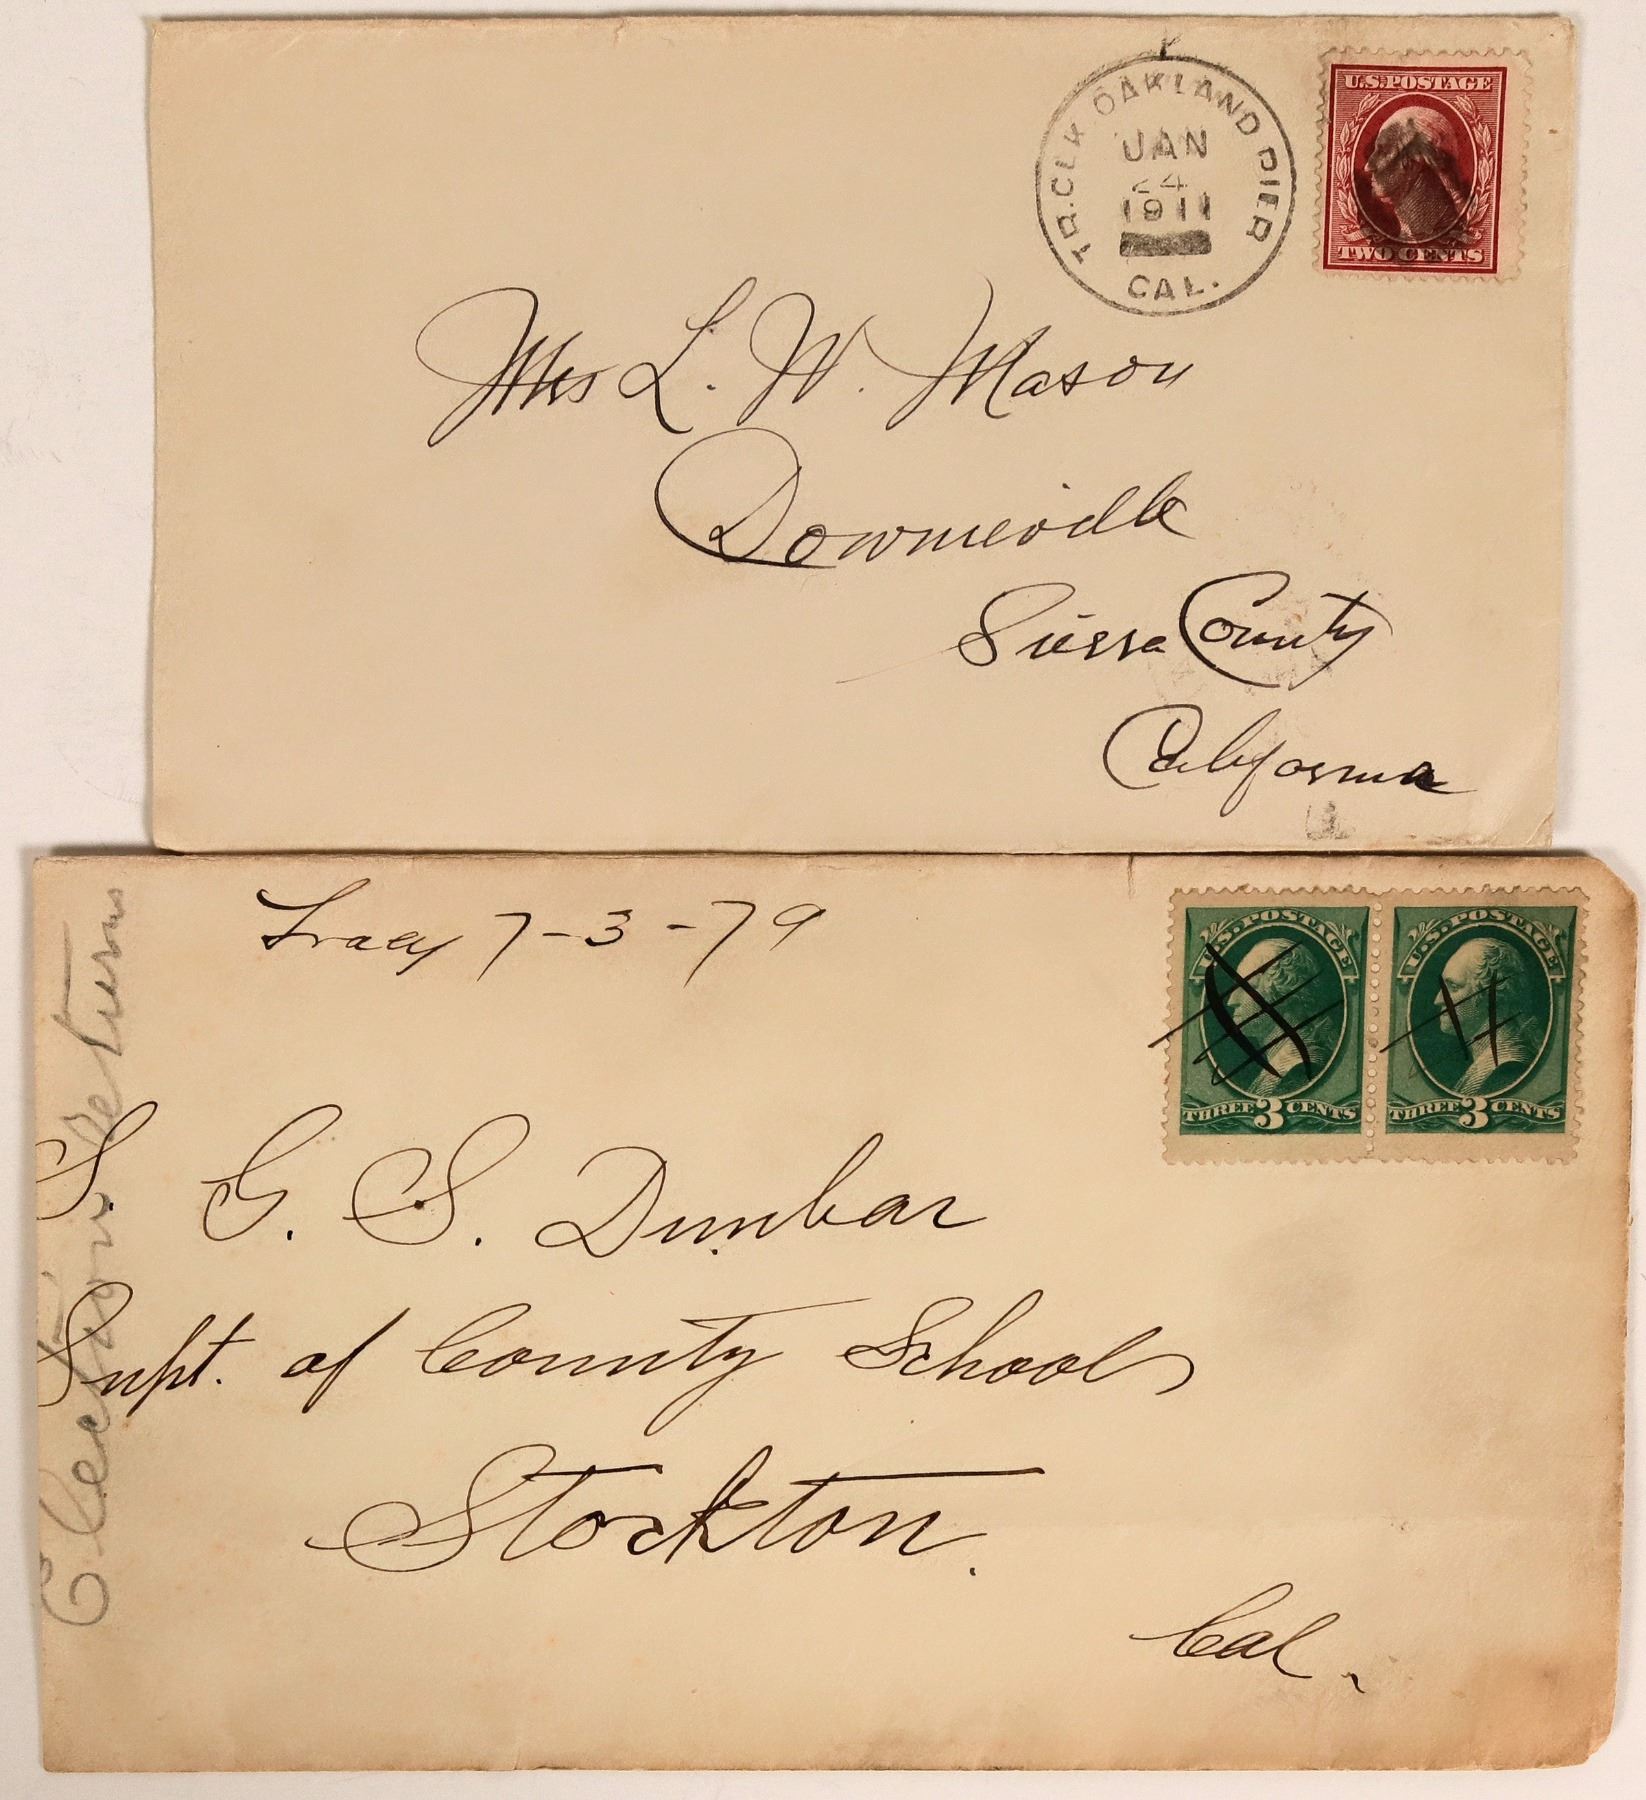 TR.CLK OAKLAND PIER
JAN
24
1911
CAL.
U.S. POSTAGE
TWO CENTS
Mrs L. W. Mason
Downieville
Sierra County
California
Tracy 7-3-79
U.S. POSTAGE
THREE 3 CENTS
U.S. POSTAGE
THREE 3 CENTS
Election Returns
S. G. S. Dunbar
Supt. of County Schools
Stockton.
Cal.